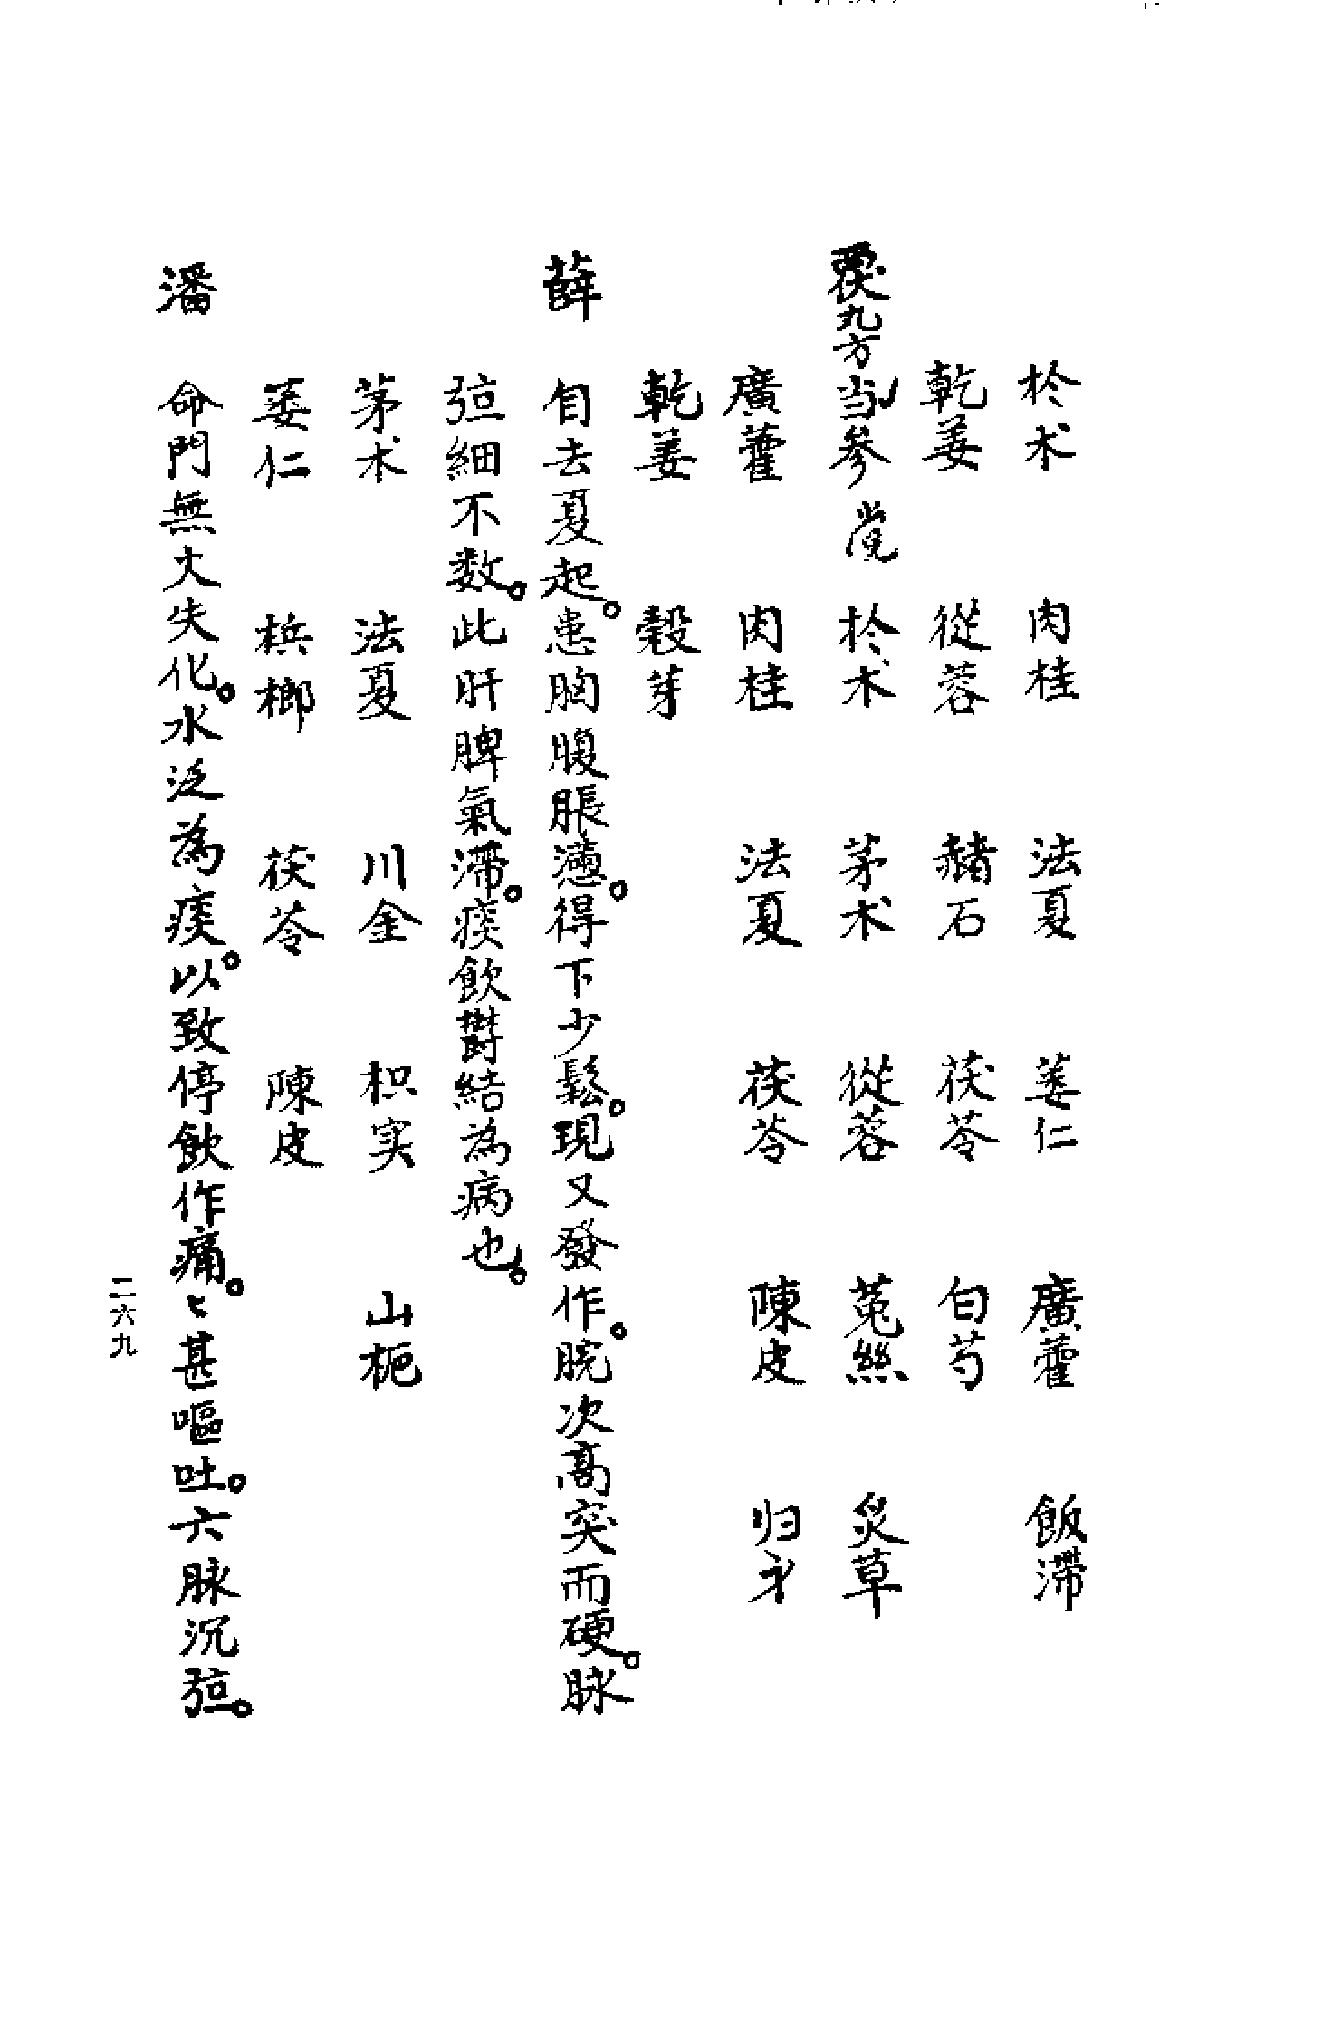 於术 肉桂 法夏 蒌仁 廣藿 飯滞
乾姜 從蓉 赭石 茯苓 白芍
覆丸方 当参 党 於术 茅术 從蓉 菟絲 炙草
廣藿 肉桂 法夏 茯苓 陳皮 归才
乾姜 穀芽
薛 自去夏起。患胸腹脹懑。得下少鬆。現又發作。脘次高突而硬。脉
弦細不数。此肝脾氣滞。痰飲鬱結為病也。
茅术 法夏 川金 枳实 山栀
蒌仁 梹榔 茯苓 陳皮
潘 命門無火失化。水泛為痰。以致停飲作痛。〻甚嘔吐。六脉沉弦。
二六九